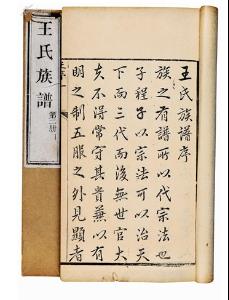 王氏族譜序
族之有譜所以代宗法也
子程子以宗法可以治天
下而三代而後無世官大
夫不得常守其貴兼以有
明之制五服之外見顯者
王氏族譜
第二冊